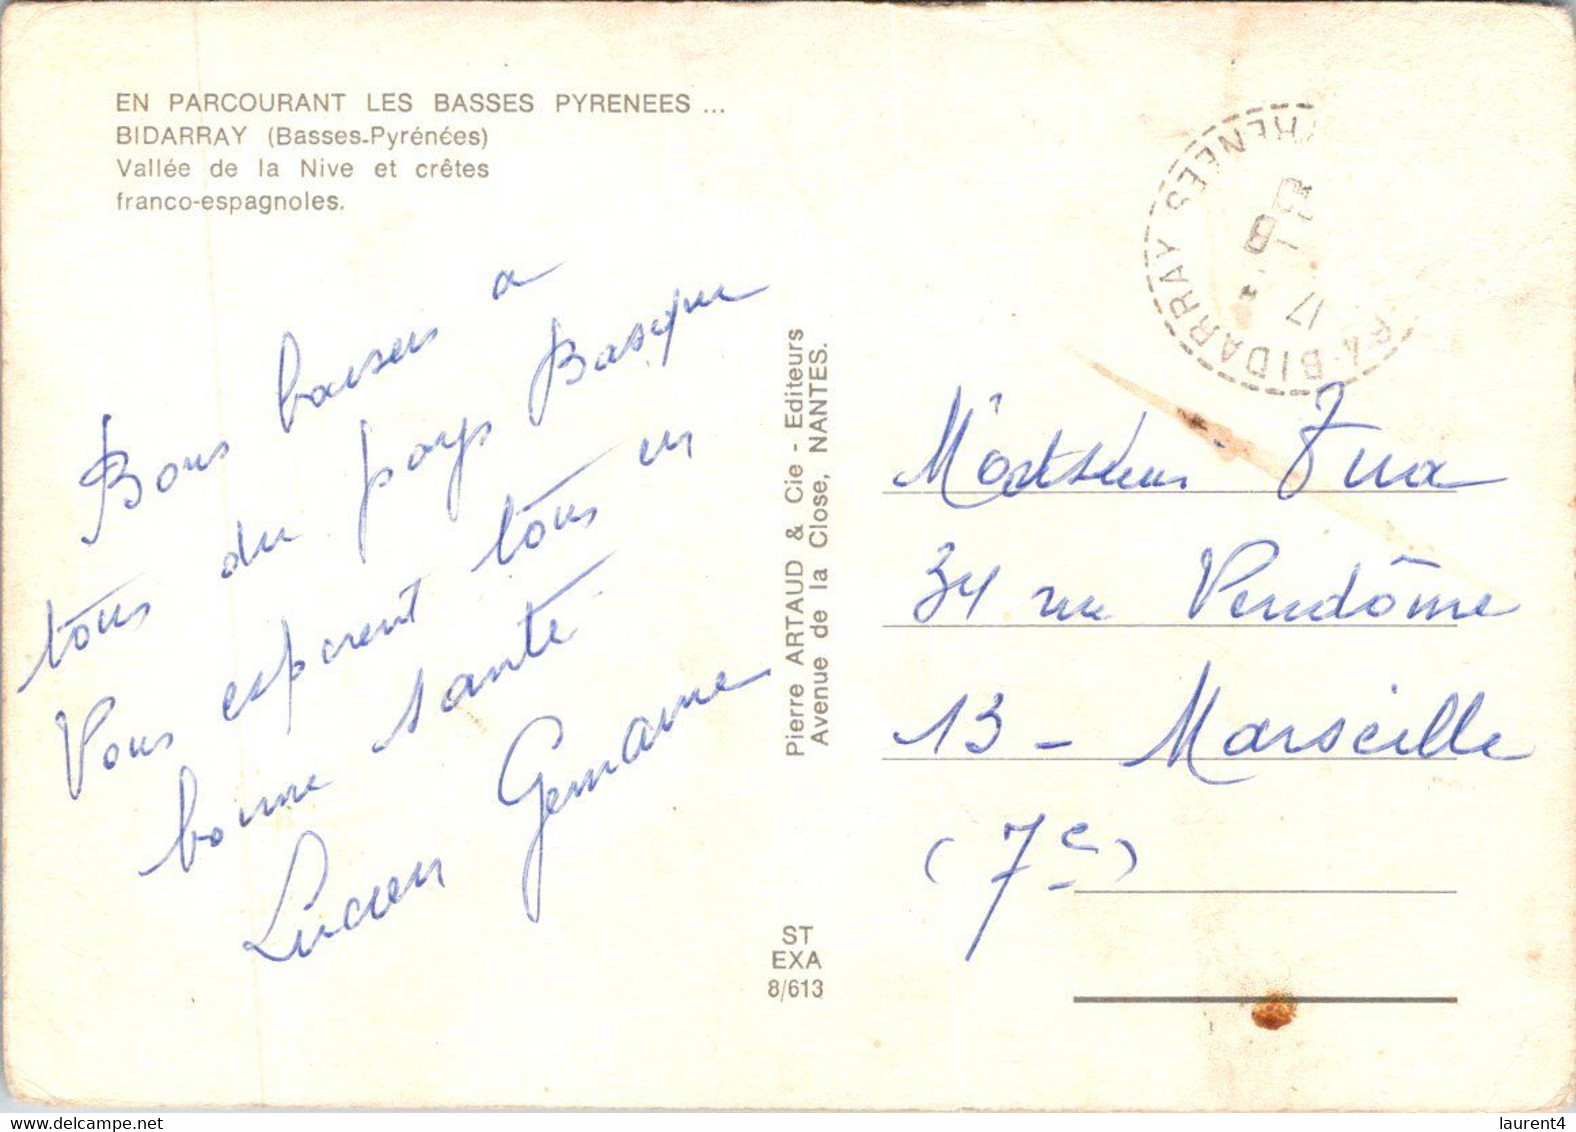 EN PARCOURANT LES BASSES PYRENEES ...
BIDARRAY (Basses-Pyrénées)
Vallée de la Nive et crêtes
franco-espagnoles.
Bons baisers à
tous du pays Basque
Vous esperent tous en
bonne santé
Lucien Germaine
Pierre ARTAUD & Cie - Editeurs
Avenue de la Close, NANTES.
ST
EXA
8/613
64 BIDARRAY
17
8
Monsieur
34 rue Vendôme
13 - Marseille
(7e)
laurent4